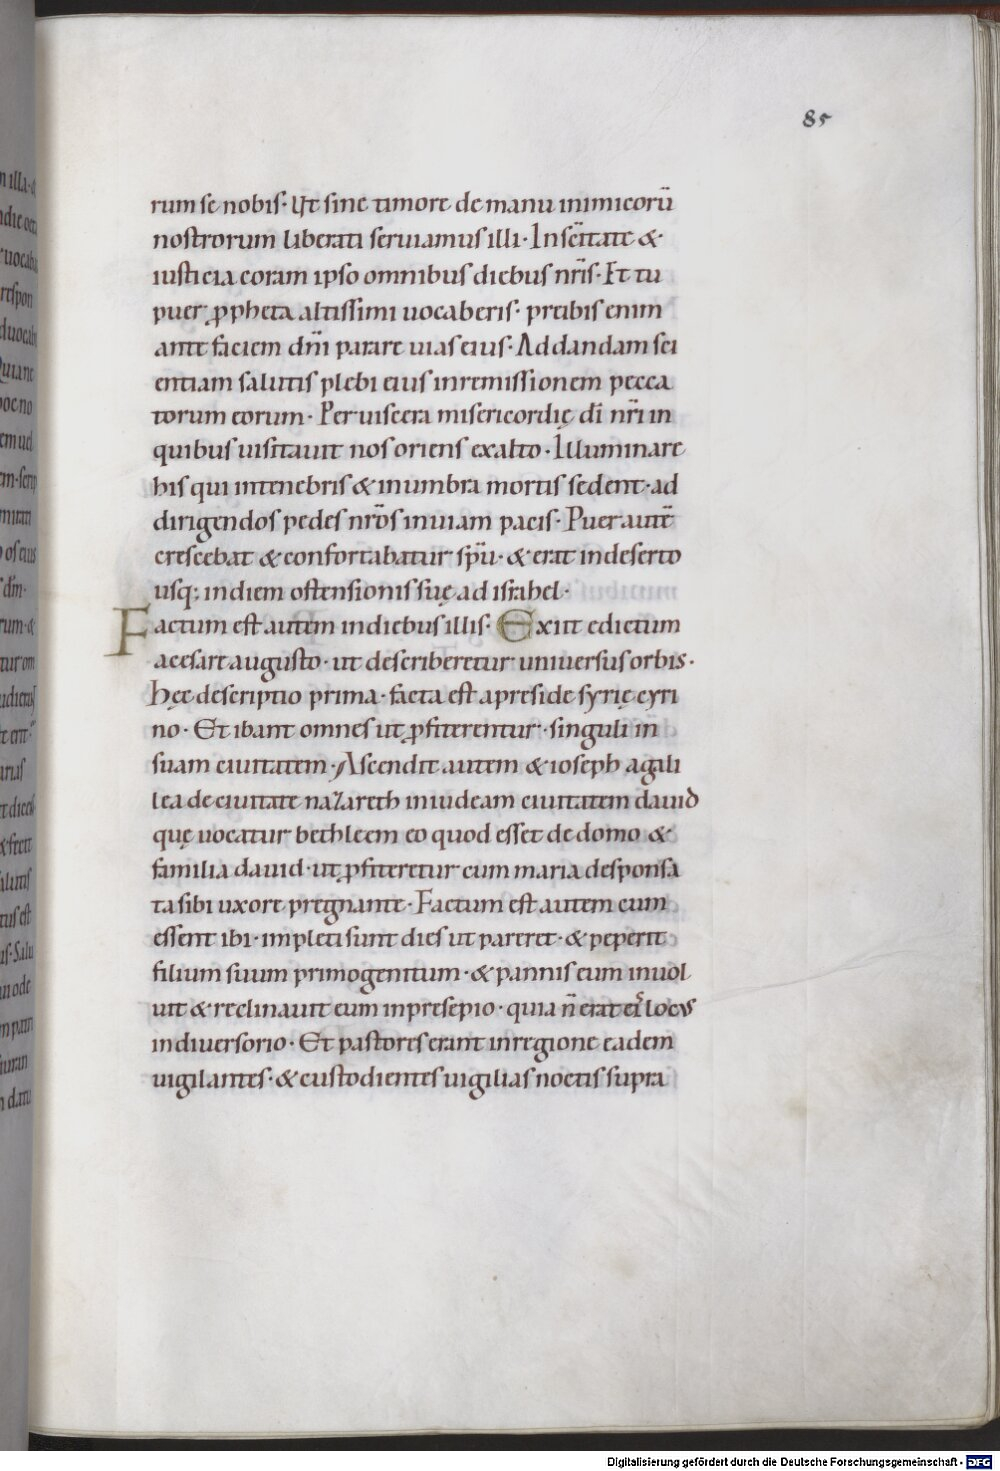 85
rum se nobis· Ut sine timore de manu inimicorū
nostrorum liberati seruiamus illi· In sc̄itate &
iusticia coram ipso omnibus diebus nr̄is· Et tu
puer ꝓpheta altissimi uocaberis· preibis enim
ante faciem dn̄i parare uias eius· Ad dandam sci
entiam salutis plebi eius in remissionem pecca
torum eorum· Per uiscera misericordię dī nr̄i in
quibus uisitauit nos oriens ex alto· Illuminare
his qui in tenebris & in umbra mortis sedent· ad
dirigendos pedes nr̄os in uiam pacis· Puer aut̄
crescebat & confortabatur sp̄u· & erat in deserto
usq; in diem ostensionis suę ad israhel·
Factum est autem in diebus illis· Exiit edictum
a cesare augusto· ut describeretur uniuersus orbis·
Hęc descriptio prima· facta est a preside syrię cyri
no· Et ibant omnes ut ꝓfiterentur· singuli in
suam ciuitatem· Ascendit autem & ioseph a gali
lea de ciuitate nazareth in iudeam ciuitatem dauid
quę uocatur bethleem eo quod esset de domo &
familia dauid· ut ꝓfiteretur cum maria desponsa
ta sibi uxore pregnante· Factum est autem cum
essent ibi· impleti sunt dies ut pareret· & peperit
filium suum primogenitum· & pannis eum inuol
uit & reclinauit eum in presepio· quia n̄ erat eis locus
in diuersorio· Et pastores erant in regione eadem
uigilantes· & custodientes uigilias noctis supra
Digitalisierung gefördert durch die Deutsche Forschungsgemeinschaft - DFG